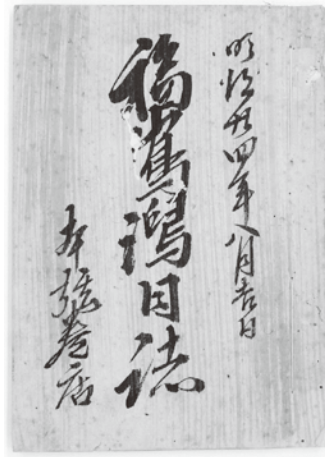 明治廿四年八月吉日
福嶌潟日誌
本弦巻店